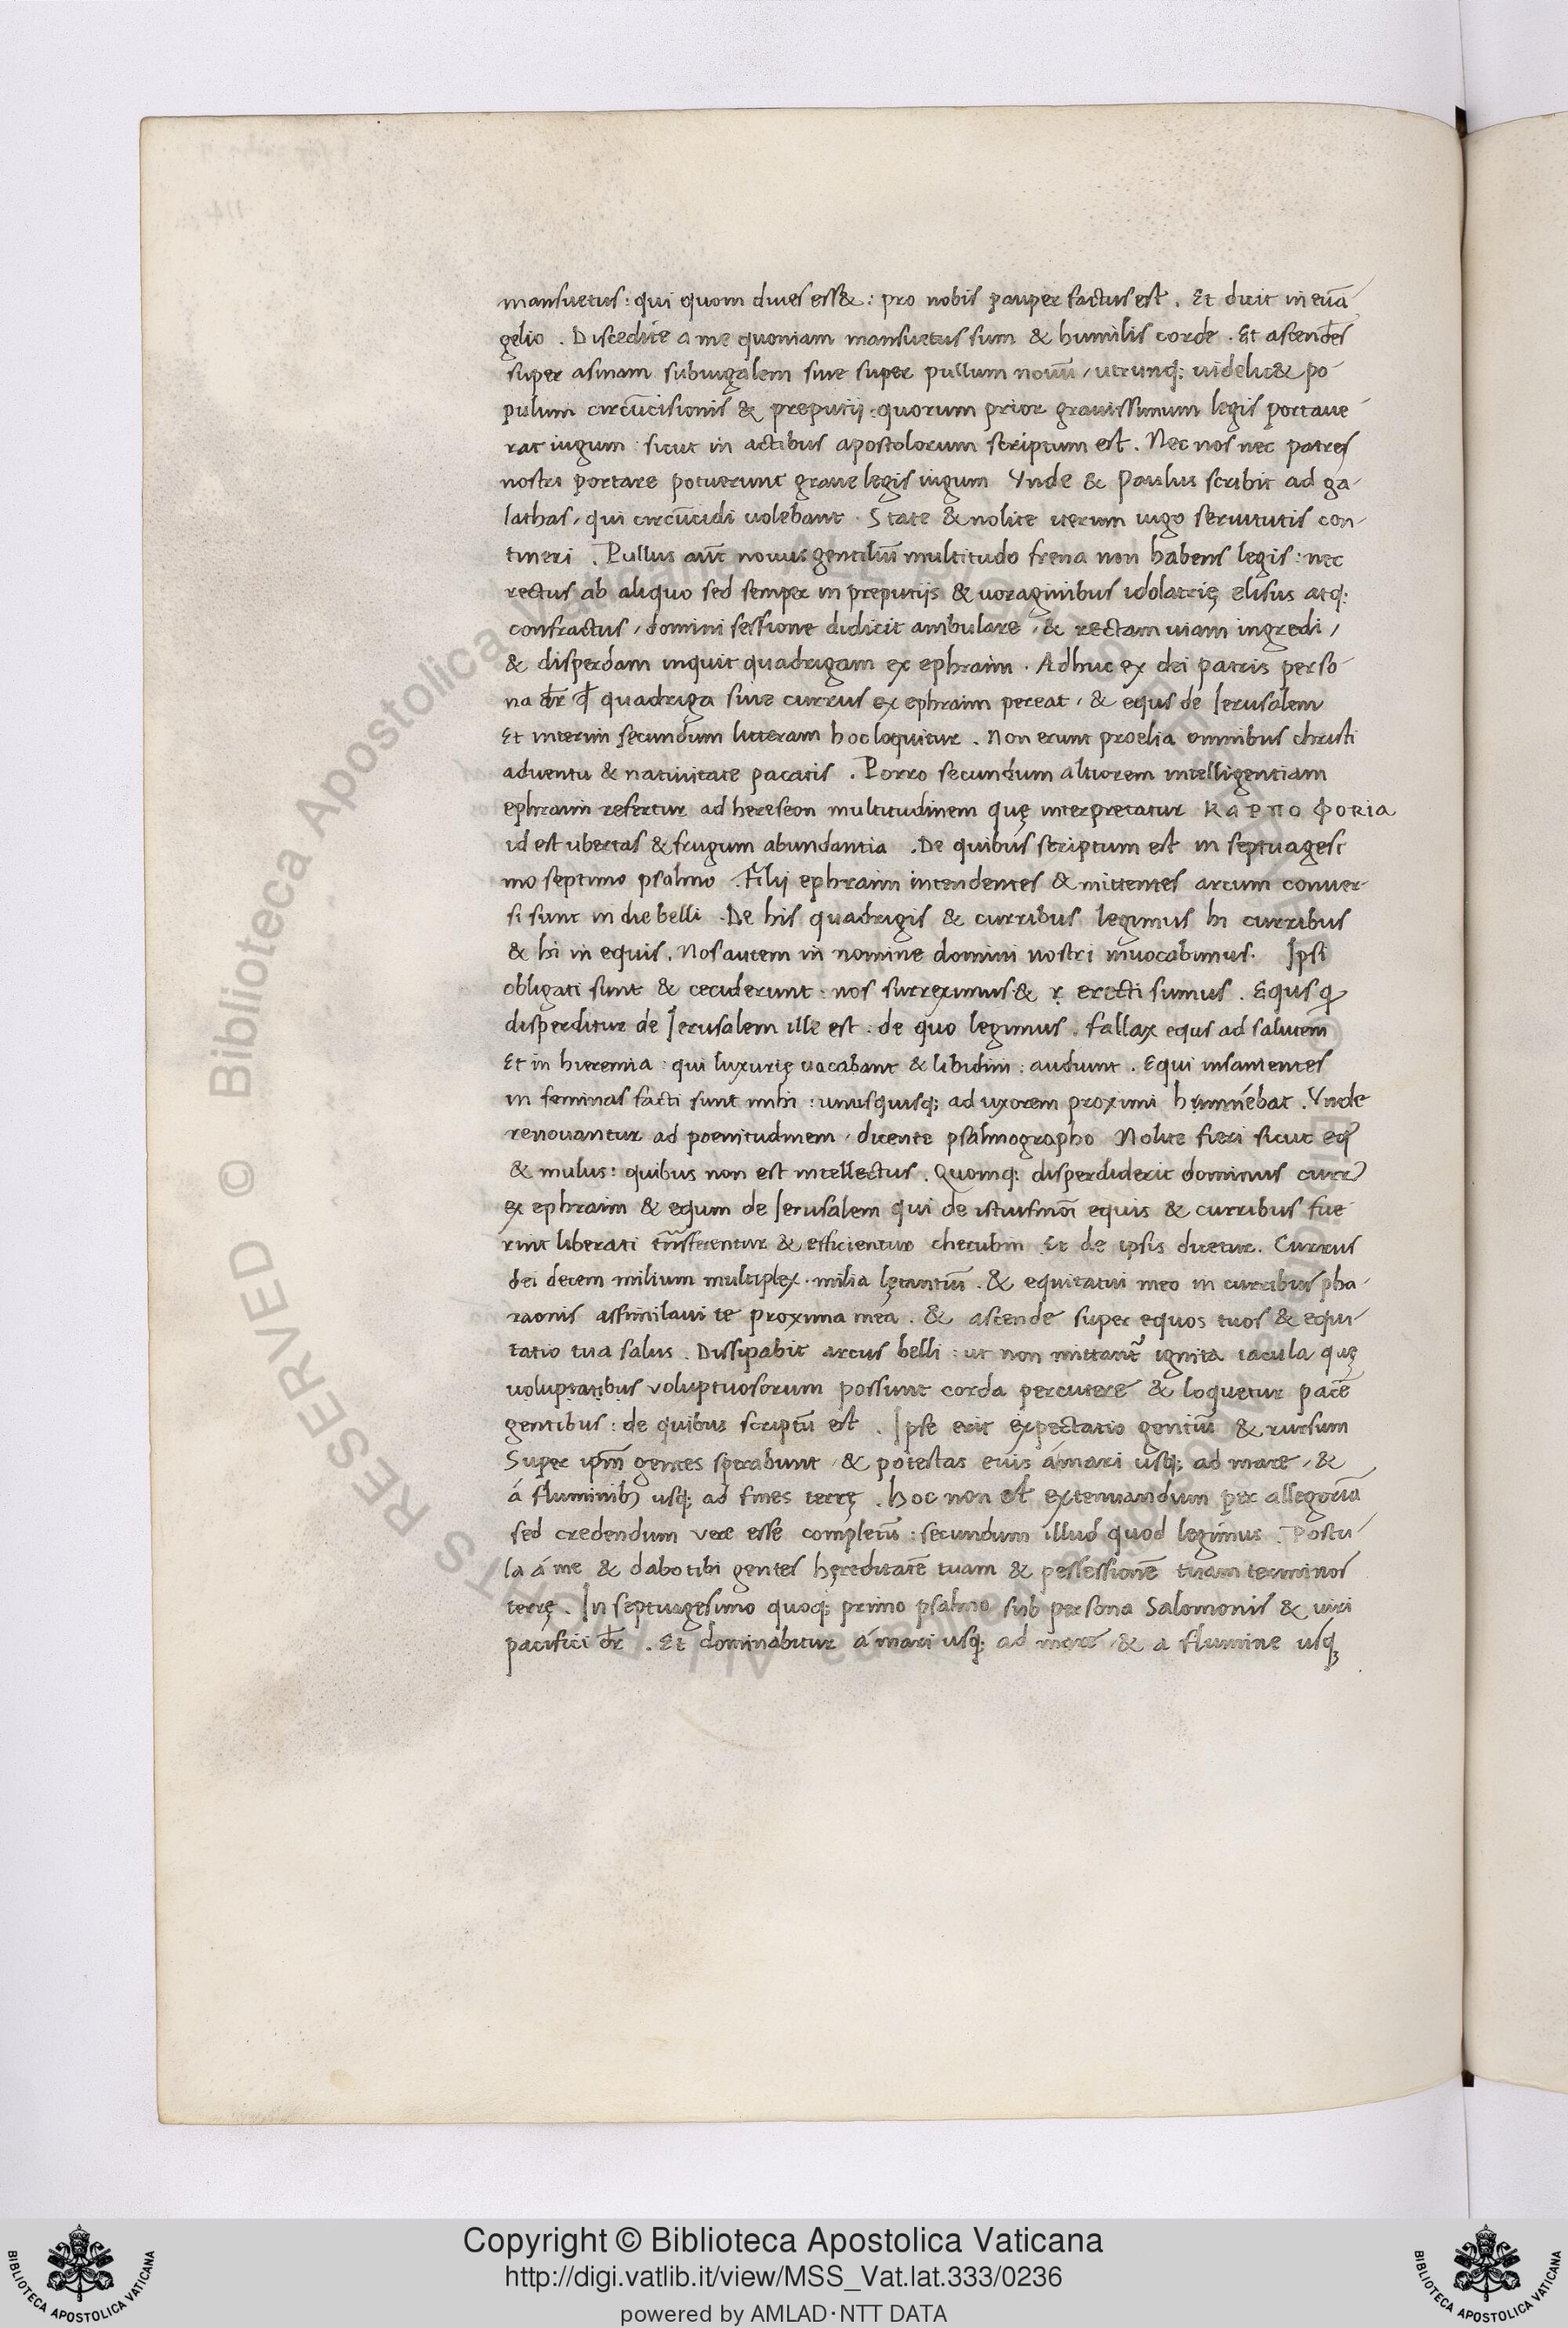 mansuetus: qui quom diues ess&: pro nobis pauper factus est. Et dicit in euā
gelio. Discedite a me quoniam mansuetus sum & humilis corde. Et ascendēs
super asinam subiugalem siue super pullum nouū / utrunq; uidelic& po-
pulum circūcisionis & preputij: quorum prior grauissimum legis portaue-
rat iugum: sicut in actibus apostolorum scriptum est. Nec nos nec patres
nostri portare potuerunt graue legis iugum Vnde & Paulus scribit ad ga-
lathas, qui circūcidi uolebant. State & nolite iterum iugo seruitutis con-
tineri. Pullus aūt nouus gentiliū multitudo frena non habens legis: nec
rectus ab aliquo sed semper in preputijs & uoraginibus idolatrię elisus atq;
confractus, domini sessione didicit ambulare, & rectam uiam ingredi,
& disperdam inquit quadrigam ex ephraim. Adhuc ex dei patris perso-
na dr̄ ꝙ quadriga siue currus ex ephraim pereat, & equs de Ierusalem
Et interim secundum litteram hoc loquitur. Non erunt proelia omnibus christi
aduentu & natiuitate pacatis. Porro secundum altiorem intelligentiam
ephraim refertur ad hereseon multitudinem quę interpretatur ΚΑΡΠΟΦΟΡΙΑ
id est ubertas & frugum abundantia. De quibus scriptum est in septuagesi
mo septimo psalmo. Filij ephraim intendentes & mittentes arcum conuer-
si sunt in die belli. De his quadrigis & curribus legimus hi curribus
& hi in equis. Nos autem in nomine domini nostri inuocabimus. Ipsi
obligati sunt & ceciderunt. nos surreximus & ṛ erecti sumus. Equs q̄
disperditur de Ierusalem ille est: de quo legimus. fallax equs ad salutem
Et in hieremia: qui luxurię uacabant & libidini: audiunt. Equi insanientes
in feminas facti sunt mihi: unusquisq; ad uxorem proximi hinniebat. Vnde
renouantur ad poenitudinem, dicente psalmographo Nolite fieri sicut eq̄
& mulus: quibus non est intellectus. Quomq; disperdiderit dominus curr̄
ex ephraim & equm de Ierusalem qui de istiusmōi equis & curribus fue
rint liberati trāsferentur & efficientur cherubin Et de ipsis dicetur. Currus
dei decem milium multiplex. milia lętantiū. & equitatui meo in curribus pha-
raonis assimilaui te proxima mea. & ascende super equos tuos & equi-
tatio tua salus. Dissipabit arcus belli: ut non mittant̄ ignita iacula quę
uoluptatibus voluptuosorum possunt corda percutere & loquetur pacē
gentibus: de quibus scriptū est. Ipse erit expectatio gentiū & rursum
Super ipm̄ gentes sperabunt, & potestas eius á mari usq; ad mare, &
á fluminib; usq; ad fines terrę. hoc non est extenuandum per allegoriā
sed credendum vere esse completū: secundum illud quod legimus. Postu-
la á me & dabo tibi gentes hęreditatē tuam & pessessionē tuam terminos
terrę. In septuagesimo quoq; primo psalmo sub persona Salomonis & uiri
pacifici dr̄. Et dominabitur á mari usq; ad mare & a flumine usq;
Copyright © Biblioteca Apostolica Vaticana
http://digi.vatlib.it/view/MSS_Vat.lat.333/0236
powered by AMLAD·NTT DATA